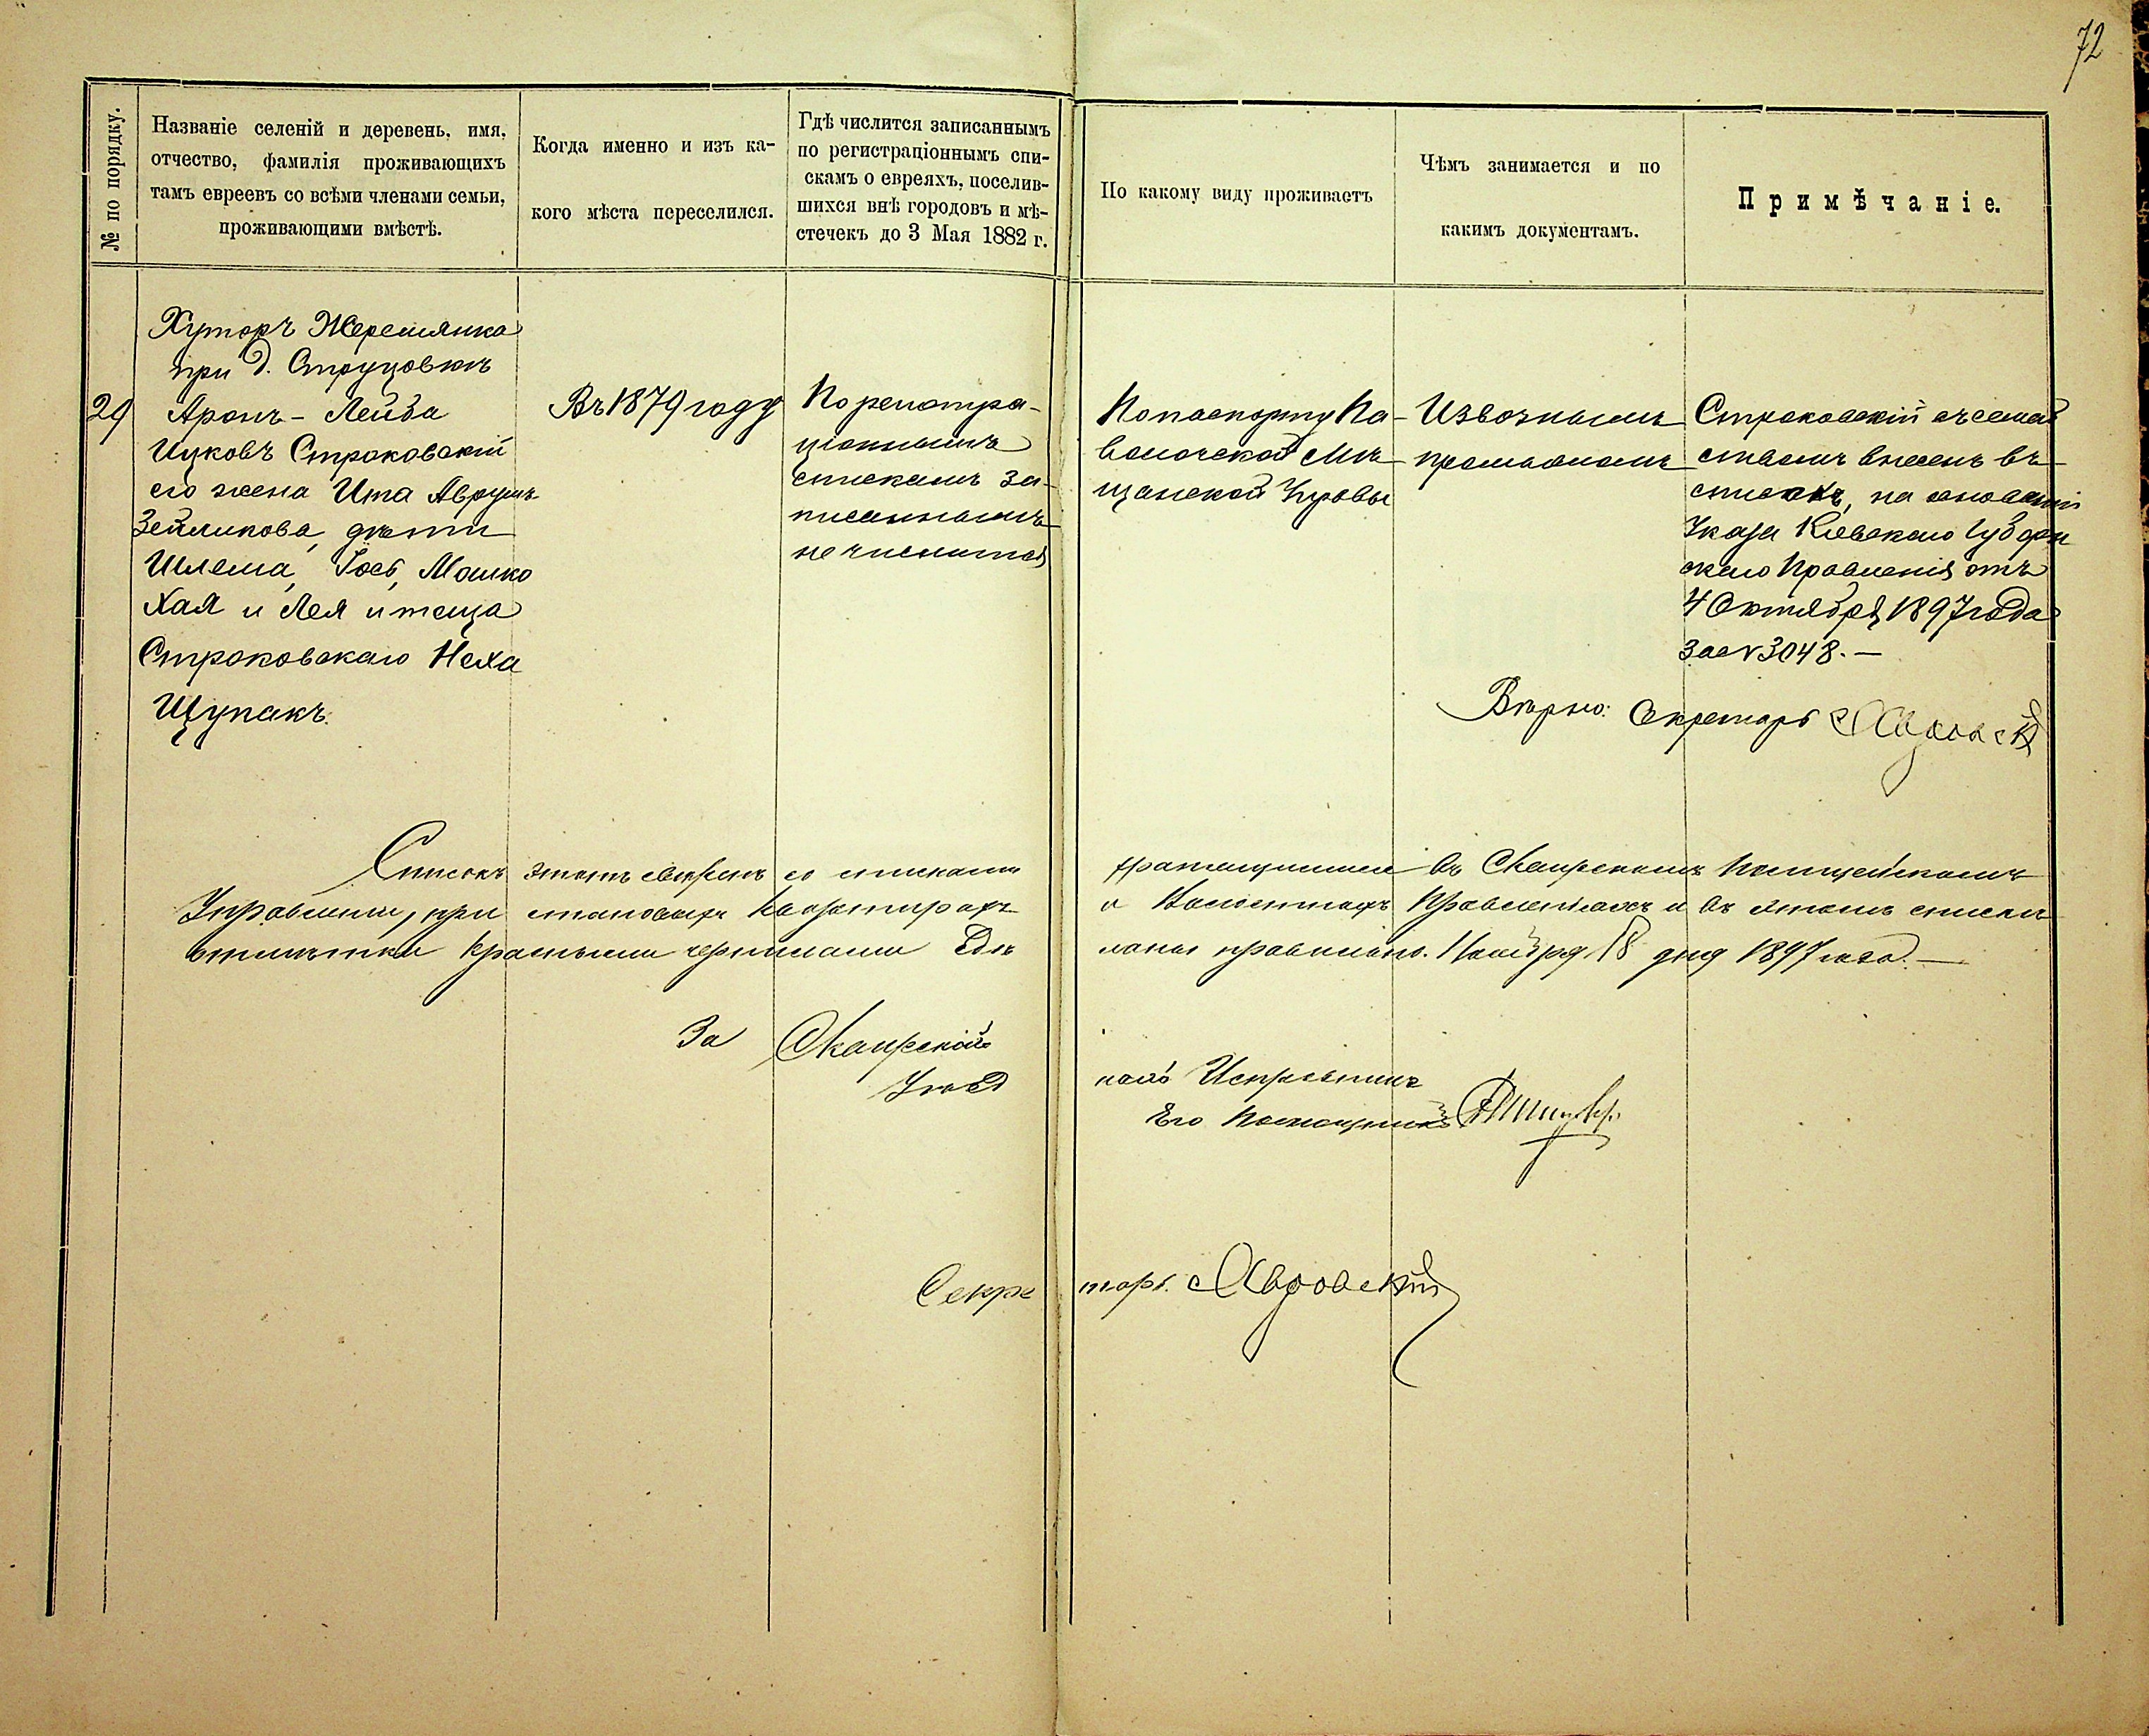 72
№ по порядку.
Названіе селеній и деревень, имя,
отчество, фамилія проживающихъ
тамъ евреевъ со всѣми членами семьи,
проживающими вмѣстѣ.
Когда именно и изъ ка-
кого мѣста переселился.
Гдѣ числится записаннымъ
по регистраціоннымъ спи-
скамъ о евреяхъ, поселив-
шихся внѣ городовъ и мѣ-
стечекъ до 3 Мая 1882 г.
По какому виду проживаетъ
Чѣмъ занимается и по
какимъ документамъ.
Примѣчаніе.
Хуторъ Жерелянка
при д. Струцовкѣ
29
Аронъ-Лейба
Ицковъ Строковскій
его жена Ита Аврумъ-
Зейликова, дѣти
Шлема, Іось, Мошко
Хая и Лея и теща
Строковскаго Неха
Щупакъ.
Въ 1879 году
По регистра-
ціоннымъ
спискамъ за-
писаннымъ
не числится
По паспорту Па-
волочской Мѣ-
щанской Управы
Извознымъ
промысломъ
Строковскій съ семей
ствомъ внесенъ въ
списокъ, на основаніи
Указа Кіевскаго Губерн
скаго Правленія отъ
4 Октября 1897 года
за № 3048. —
Вѣрно: Секретарь
Списокъ этотъ свѣренъ со списками хранящимися въ Сквирскомъ Полицейскомъ
Управленіи, при становыхъ Квартирахъ и Волостныхъ Правленіяхъ и въ этомъ спискѣ
отмѣтки красными чернилами сдѣ ланы правильно. Ноября 18 дня 1897 года. —
За Сквирскій
Уѣзд ный Исправникъ
Его Помощникъ
Секре тарь